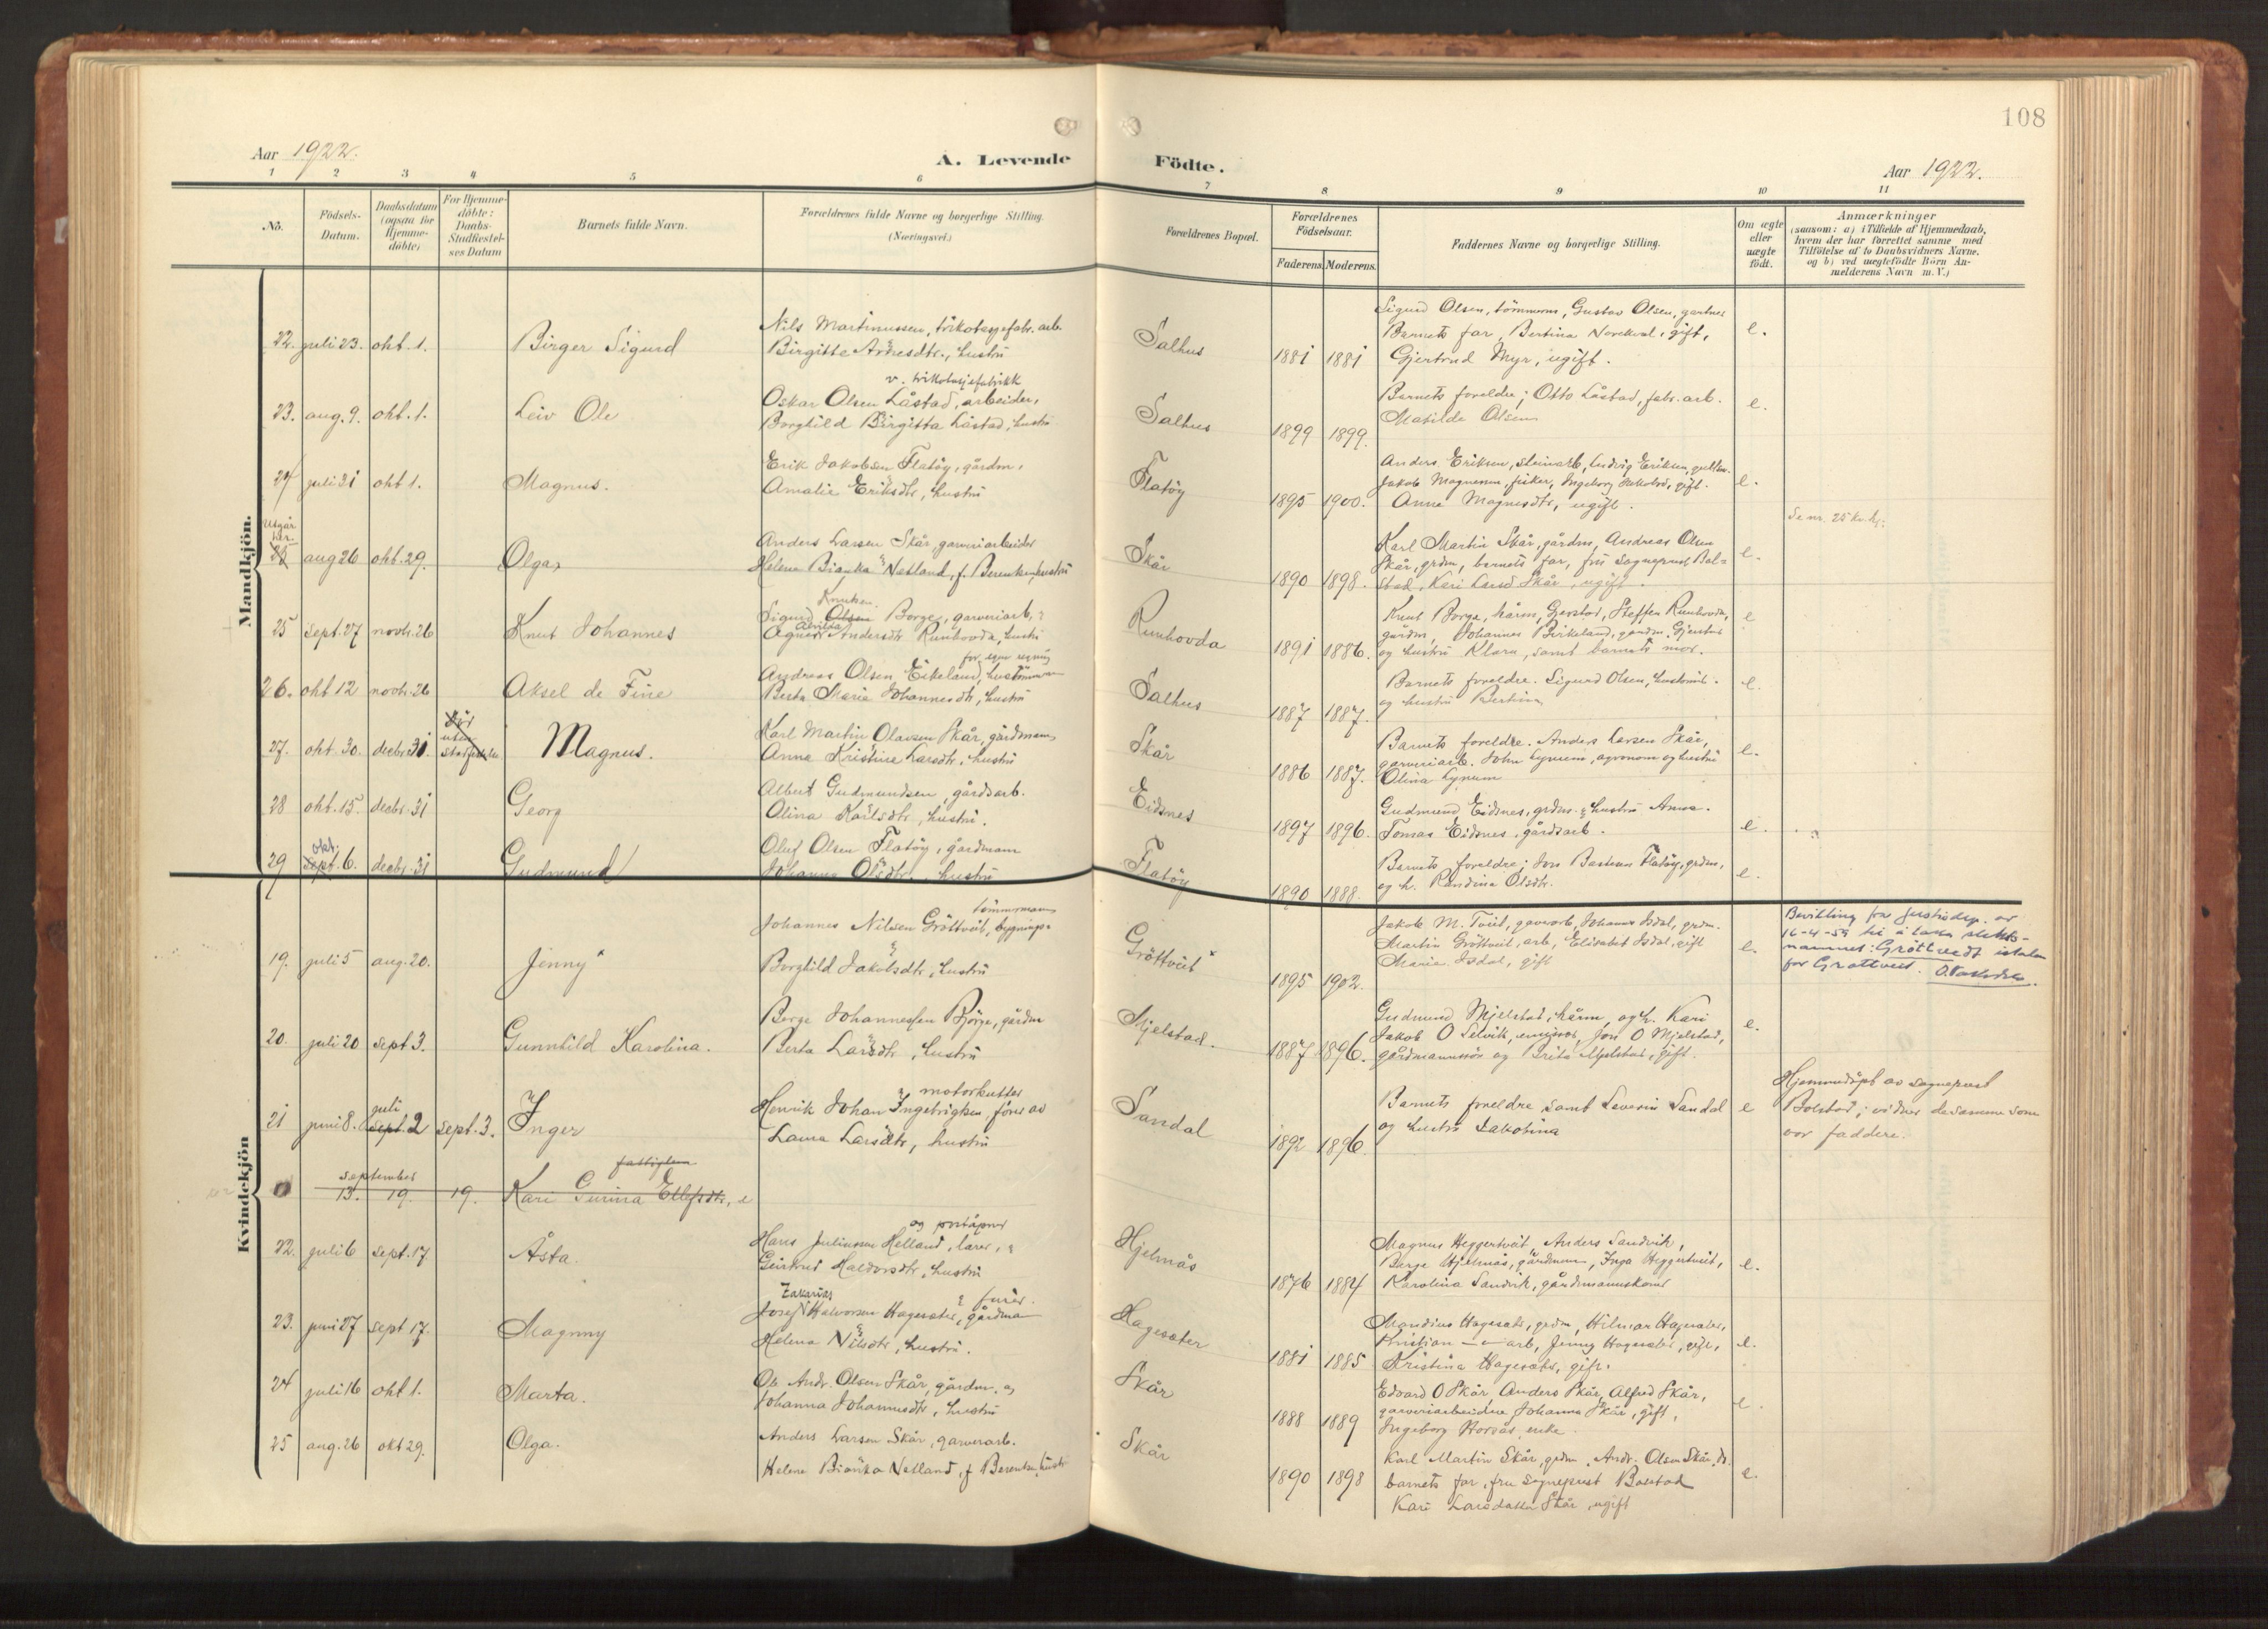 108
Aar 1922.
A. Levende Födte.
Aar 1922.
1 2 3 4 5 6 7 8 9 10 11
No.
Födsels-Datum.
Daabsdatum (ogsaa for Hjemme-döbte)
For Hjemme-döbte: Daabs-Stadfæstel-ses Datum
Barnets fulde Navn.
Forældrenes fulde Navne og borgerlige Stilling. (Næringsvei.)
Forældrenes Bopæl.
Forældrenes Födselsaar.
Faderens. Moderens.
Faddernes Navne og borgerlige Stilling.
Om ægte eller uægte födt.
Anmærkninger
(saasom: a) i Tilfælde af Hjemmedaab,
hvem der har forrettet samme med
Tilföielse af to Daabsvidners Navne,
og b) ved uægtefödte Börn An-
melderens Navn m. V.)
Mandkjön.
22. juli 23. okt. 1. Birger Sigurd
Nils Martinussen, trikotasjefabr. arb.
Birgitte Arnesdtr., hustru
Salhus 1881 1881
Sigurd Olsen, tömmerm, Gustav Olsen, gartner
Barnets far, Bertina Nordkval, gift,
Gjertrud Myr, ugift.
e.
23. aug. 9. okt. 1. Leiv Ole
v. trikotasjefabrikk
Oskar Olsen Låstad, arbeider,
Borghild Birgitta Låstad, hustru
Salhus 1899 1899.
Barnets foreldre; Otto Låstad, fabr. arb.
Matilde Olsen
e.
24 juli 31 okt 1. Magnus.
Erik Jakobsen Flatöy, gårdm,
Amalie Eriksdtr, hustru
Flatöy 1895 1900.
Anders Eriksen, steinarb, Ludvig Eriksen,
Jakob Magnussen, fisker, Ingeborg Jakobsd, gift.
Anna Magnusdtr, ugift.
e.
Utgår her
aug 26 okt. 29. Olga
Anders Larsen Skår, garveriarbeider
Helene Bianka Natland, f. Berentsen, hustru
Skår 1890 1898.
Karl Martin Skår, gårdm, Andreas Olsen
Skår, grdm, barnets far, fru sogneprest Bol-
stad, Kari Larsd Skår, ugift.
e.
Se nr. 25 kv. kj.
25 sept. 27 novb. 26 Knut Johannes
Knutsen
Sigurd Olsen Borge, garveriarb,
Agnes Andersdtr Runhovda, hustru
Runhovda 1891 1886.
Knut Borge, Steffen Runhovda,
gårdm, Johannes Birkeland, gårdm,
og hustru Klara, samt barnets mor.
e
26. okt 12 novb. 26 Aksel de Fine
for egen regning
Andreas Olsen Eikeland,
Berta Maria Johannesdtr, hustru
Salhus 1887 1887.
Barnets foreldre. Sigurd Olsen,
og hustru Bertina
e.
27. okt. 30. decbr 31. Magnus.
Karl Martin Olavsen Skår, gårdmann
Anna Kristine Larsdtr, hustru
Skår 1886 1887.
Barnets foreldre. Anders Larsen Skår,
garveriarb. John Lynum, agronom og hustru
Olina Lynum
e.
28 okt. 15. decbr. 31 Georg
Albert Gudmundsen, gårdsarb.
Alina Karlsdtr, hustru.
Eidsnes 1897 1896.
Gudmund Eidsnes, grdm. & hustru Anna.
Tomas Eidsnes, gårdsarb.
e.
29 okt. sept. 6. decbr. 31 Gudmund
Oluf Olsen Flatöy, gårdmann
Johanna Olsdtr., hustru
Flatöy 1890 1888.
Barnets foreldre; Jon Bastesen Flatöy, grdm,
og h. Randina Olsdtr.
e.
Kvindekjön
19. juli 5 aug. 20. Jenny
tömmermann
Johannes Nilsen Gröttveit, bygnings-
Borghild Jakobsdtr, hustru
Gröttveit 1895 1902.
Jakob M. Tveit, garverarb, Johannes Isdal, grdm.
Martin Gröttveit, arb, Elisabet Isdal, gift
Marie Isdal, gift
e.
Bevilling fra justisdep. av
16-4-59 til å taka slekts-
namnet: Gröttvedt istaden
for Grøttveit.
20. juli 20 sept 3. Gunnhild Karolina.
Berge Johannessen Bjørge, gårdm
Berta Larsdtr, hustru
Mjelstad. 1887 1896.
Gudmund Mjelstad, kårm, og h. Kari
Jakob O Selvik, Jon O Mjelstad,
gårdmannssön og Brita Mjelstad, gift.
e.
21 juni 8. juli sept. 2 sept. 3. Inger
motorkutter
Henrik Johan Ingebrigtsen, förer av
Laura Larsdtr, hustru
Sandal 1892 1896.
Barnets foreldre samt Severin Sandal
og hustru Jakobina
e
Hjemmedöpt av sogneprest
Bolstad; vidner desamme som
var faddere.
september
13. 19. 19. Kari Gurina Ellefsdtr, e
fattiglem
22. juli 6 sept. 17 Åsta.
og poståpner
Hans Juliussen Helland, lærer,
Geirtrud Haldorsdtr, hustru
Hjelmås 1876 1884
Magnus Heggertveit, Anders Sandvik,
Berge Hjelmås, gårdmenn, Inga Heggertveit,
Karolina Sandvik, gårdmannskoner
e.
23. juni 27 sept 17. Magnny
Zakarias
Josef Halvorsen Hagesæter, gårdma
Helena Nilsdtr, hustru.
Hagesæter 1881 1885
Mandius Hagesæter, grdm, Hilmar Hagesæter,
Kristian — " — arb, Jenny Hagesæter, gift,
Kristina Hagesæter, gift.
e.
24 juli 16 okt 1. Marta.
Ole Andr. Olsen Skår, gårdm. og
Johanna Johannesdtr, hustru
Skår 1888 1889
Edvard O Skår, Anders Skår, Alfred Skår,
garveriarbeidere Johanna Skår, gift,
Ingeborg Horsås, enke
e.
25 aug. 26 okt 29. Olga.
Anders Larsen Skår, garverarb.
Helene Bianka Natland, f Berentsen, hustru
Skår 1890 1898
Karl Martin Skår, grdm. Andr. Olsen Skår, do.
barnets far, fru sogneprest Bolstad
Kari Larsdatter Skår, ugift
e.